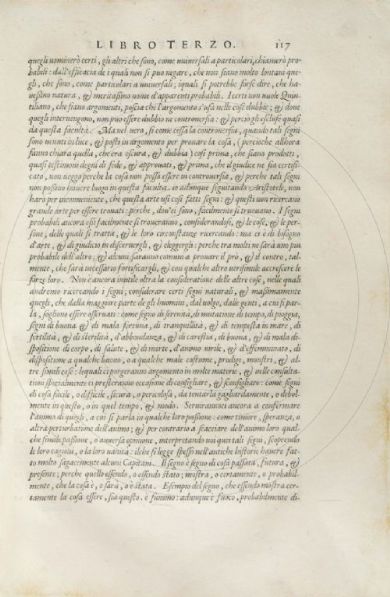 LIBRO TERZO. 117
quegli nominerò certi, gli altri che sino, come uniuersali a particulari, chiamerò pro-
babili: dall'efficacia de i quali non si puo negare, che non siano molto lontani que-
gli, che sino, come particulari a uniuersali; iquali si potrebbe forse dire, che ha-
uessino natura, & meritassino nome d'apparenti probabili. I certi non uuole Quin-
tiliano, che siano argomenti, poscia che l'argomento s'usa nelle cose dubbie; & doue
quegli interuengono, non puo essere dubbio ne controuersia: & perciò gli esclude quasi
da questa facultà. Ma nel uero, si come cessa la controuersia, quando tali segni
sono uenuti in luce, & posti in argomento per prouare la cosa, (percioche allhora
fanno chiara quella, che era oscura, & dubbia) così prima, che siano prodotti,
quasi testimoni degni di fede, & approuati, & prima, che il giudice ne sia certifi-
cato, non ueggo perche la cosa non possa essere in controuersia, & perche tali segni
non possino hauere luogo in questa facultà. io adunque seguitando Aristotele, non
harò per inconueniente, che questa arte usi cosi fatti segni: & questi non ricercano
grande arte per essere trouati: perche, doue ei sono, facilmente si truouano. I segni
probabili ancora assai facilmente si troueranno, considerandosi, & le cose, & le per-
sone, delle quali si tratta, & le loro circunstanze ricercando: ma ci è di bisogno
d'arte, & di giudicio in discernergli, & eleggergli: perche tra molti ne sarà uno piu
probabile dell'altro; & alcuni saranno comuni a prouare il prò, & il contro, tal-
mente, che sarà necessario fortificargli, & con qualche altro uerisimile accrescere le
forze loro. Non è ancora inutile oltra la consideratione delle altre cose, nelle quali
andremo ricercando i segni, considerare certi segni naturali, & massimamente
quegli, che dalla maggior parte de gli huomini, dal uolgo, dalle genti, a cui si par-
la, sogliono essere osseruati: come segno di serenità, di mutatione di tempo, di pioggia,
segni di buona & di mala fortuna, di tranquilità, & di tempesta in mare, di
fertilità, & di sterilità, d'abbondanza, & di carestia, di buona, & di mala di-
spositione di corpo, di salute, & di morte, d'animo uirile, & d'effeminato, di
dispositione a qualche bacono, o a qualche male costume, prodigi, mostri, & al-
tre simili cose: lequali ci porgeranno argomento in molte materie, & nelle consulta-
tioni spetialmente ci presteranno occasione di consigliare, & sconsigliare: come segni
di cosa facile, o difficile, sicura, o pericolosa, da tentarla gagliardamente, o debol-
mente in questo, o in quel tempo, & modo. Seruiranno ancora a confermare
l'animo di quegli, a cui si parla in qualche loro passione: come timore, speranza, o
altra perturbatione dell'animo; & per contrario a scacciare dell'animo loro qual-
che simile passione, o auuersa opinione, interpretando noi quei tali segni, scoprendo
le loro cagioni, o la loro uanità: ilche si legge spesso nell'antiche historie hauere fat-
to molto sagacemente alcuni Capitani. Il segno è segno di cosa passata, futura, &
presente; perche quello essendo, o essendo stato; mostra, o certamente, o probabil-
mente, che la cosa è, o sarà, o è stata. Esempio del segno, che essendo mostra cer-
tamente la cosa essere, sia questo. è fummo: adunque è fuoco, probabilmente di-